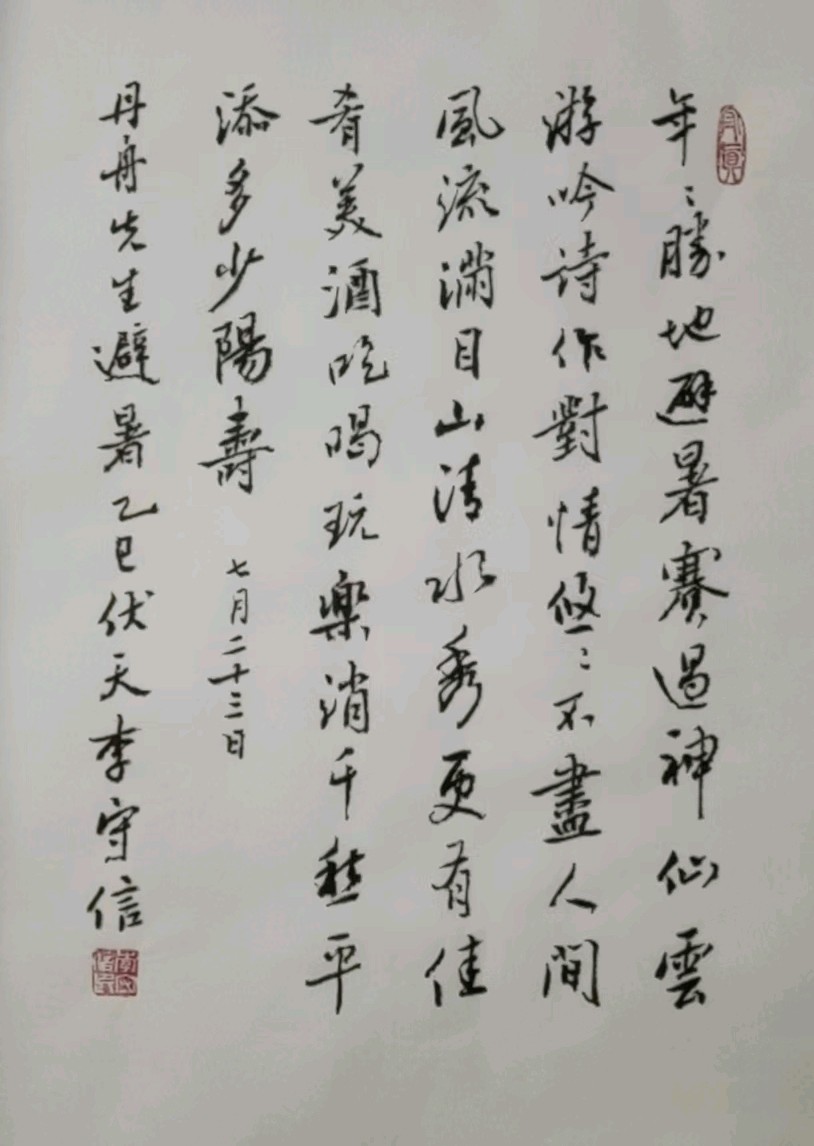 年〻勝地避暑賽過神仙雲
游吟詩作對情悠〻不盡人間
風流滿目山清水秀更有佳
肴美酒吃喝玩樂消千愁平
添多少陽壽
七月二十三日
丹舟先生避暑乙巳伏天李守信